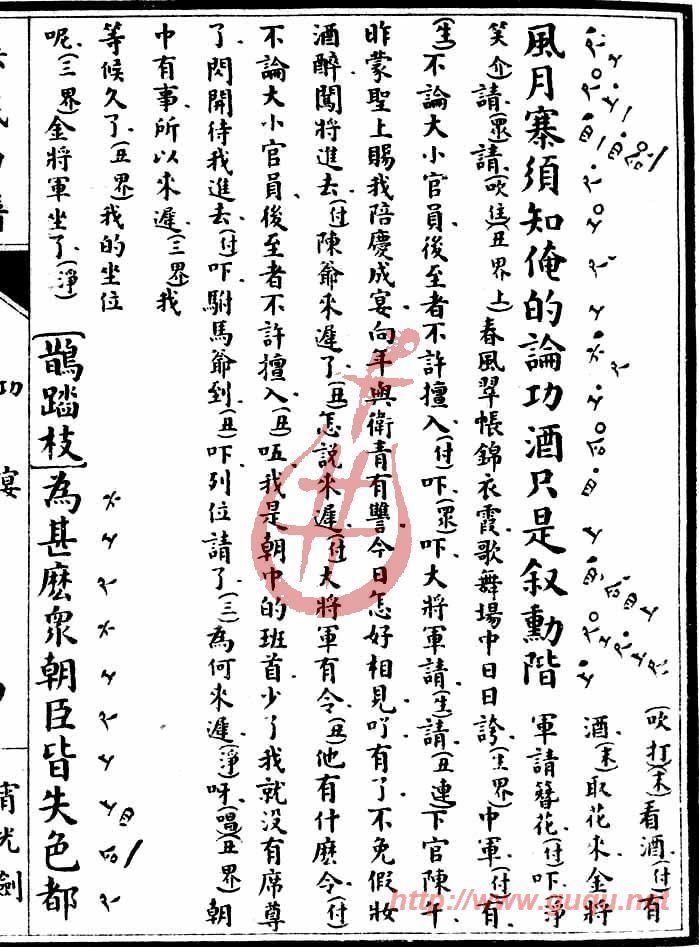 (吹打)(末)看酒(付)有
酒(末)取花來金將
軍請簪花(付)吓(淨
風月寨須知俺的論功酒只是叙勳階
笑介)請(衆)請(吹住)(丑界上)春風翠帳錦衣霞歌舞場中日日誇(生界)中軍(付)有
(生)不論大小官員後至者不許擅入(付)吓(衆)吓大將軍請(生)請(丑連)下官陳午
昨蒙聖上賜我陪慶成宴向年與衛青有讐今日怎好相見吖有了不免假妝
酒醉闖將進去(付)陳爺來遲了(丑)怎説來遲(付)大將軍有令(丑)他有什麽令(付)
不論大小官員後至者不許擅入(丑)咗我是朝中的班首少了我就没有席尊
了閃開待我進去(付)吓駙馬爺到(丑)吓列位請了(三)為何來遲(淨)呀(唱)(丑界)朝
中有事所以來遲(三界)我
等候久了(丑界)我的坐位
呢(三界)金將軍坐了(淨)
[鵲踏枝]為甚麽衆朝臣皆失色都
功 宴
霄光劍
http://www.guqu.net